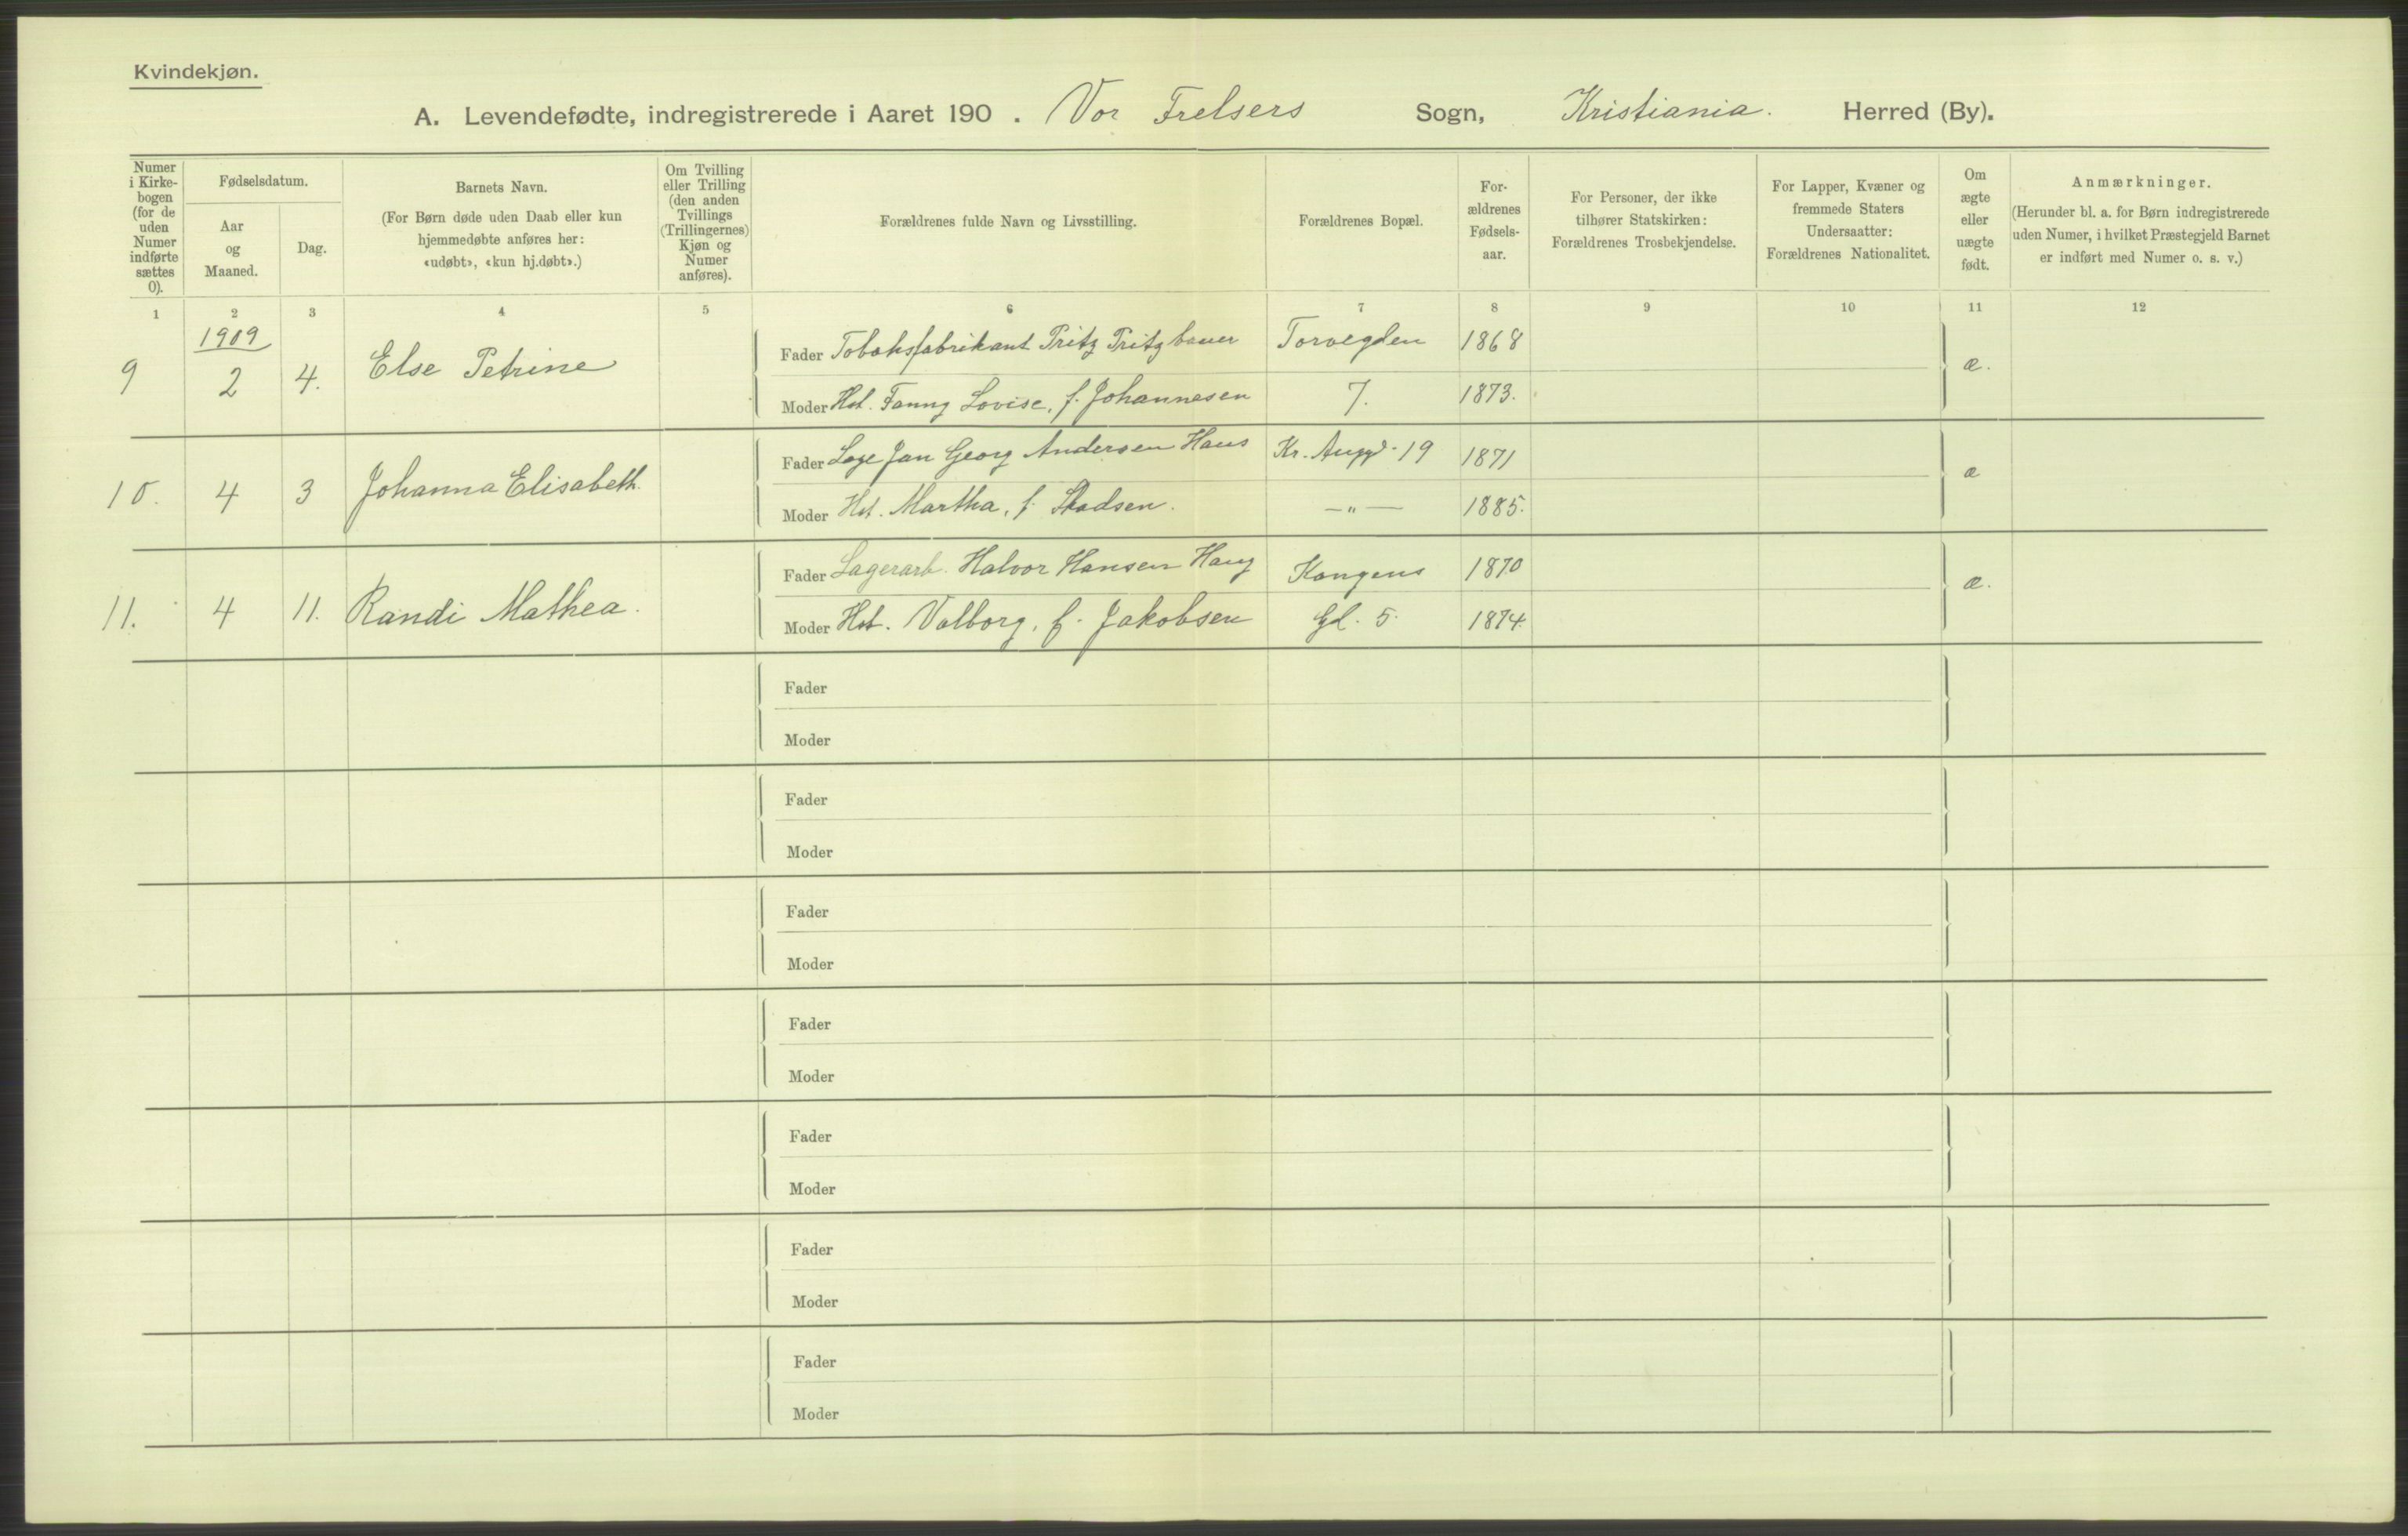 Kvindekjøn.
A. Levendefødte, indregistrerede i Aaret 190 . Vor Frelsers Sogn, Kristiania. Herred (By).
Numer i Kirke-bogen (for de uden Numer indførte sættes 0).
Fødselsdatum.
Aar og Maaned.
Dag.
Barnets Navn.
(For Børn døde uden Daab eller kun
hjemmedøbte anføres her:
«udøbt», «kun hj.døbt».)
Om Tvilling
eller Trilling
(den anden
Tvillings
(Trillingernes)
Kjøn og
Numer
anføres).
Forældrenes fulde Navn og Livsstilling.
Forældrenes Bopæl.
For-
ældrenes
Fødsels-
aar.
For Personer, der ikke
tilhører Statskirken:
Forældrenes Trosbekjendelse.
For Lapper, Kvæner og
fremmede Staters
Undersaatter:
Forældrenes Nationalitet.
Om
ægte
eller
uægte
født.
Anmærkninger.
(Herunder bl. a. for Børn indregistrerede
uden Numer, i hvilket Præstegjeld Barnet
er indført med Numer o. s. v.)
1 2 3 4 5 6 7 8 9 10 11 12
1909
9 2 4. Else Petrine
Fader Tobaksfabrikant Pritz Pritzbauer Torvegden 1868
æ.
Moder Hst. Fanny Lovise, f. Johannesen 7. 1873.
10. 4 3 Johanna Elisabeth.
Fader Læge Jan Georg Andersen Haus Kr. Augg. 19 1871
æ
Moder Hst. Martha, f. —„— 1885.
11. 4 11. Randi Mathea.
Fader Lagerarb. Halvor Hansen Haug Kongens 1870
æ.
Moder Hst. Valborg, f. Jakobsen Gd. 5. 1874.
Fader
Moder
Fader
Moder
Fader
Moder
Fader
Moder
Fader
Moder
Fader
Moder
Fader
Moder